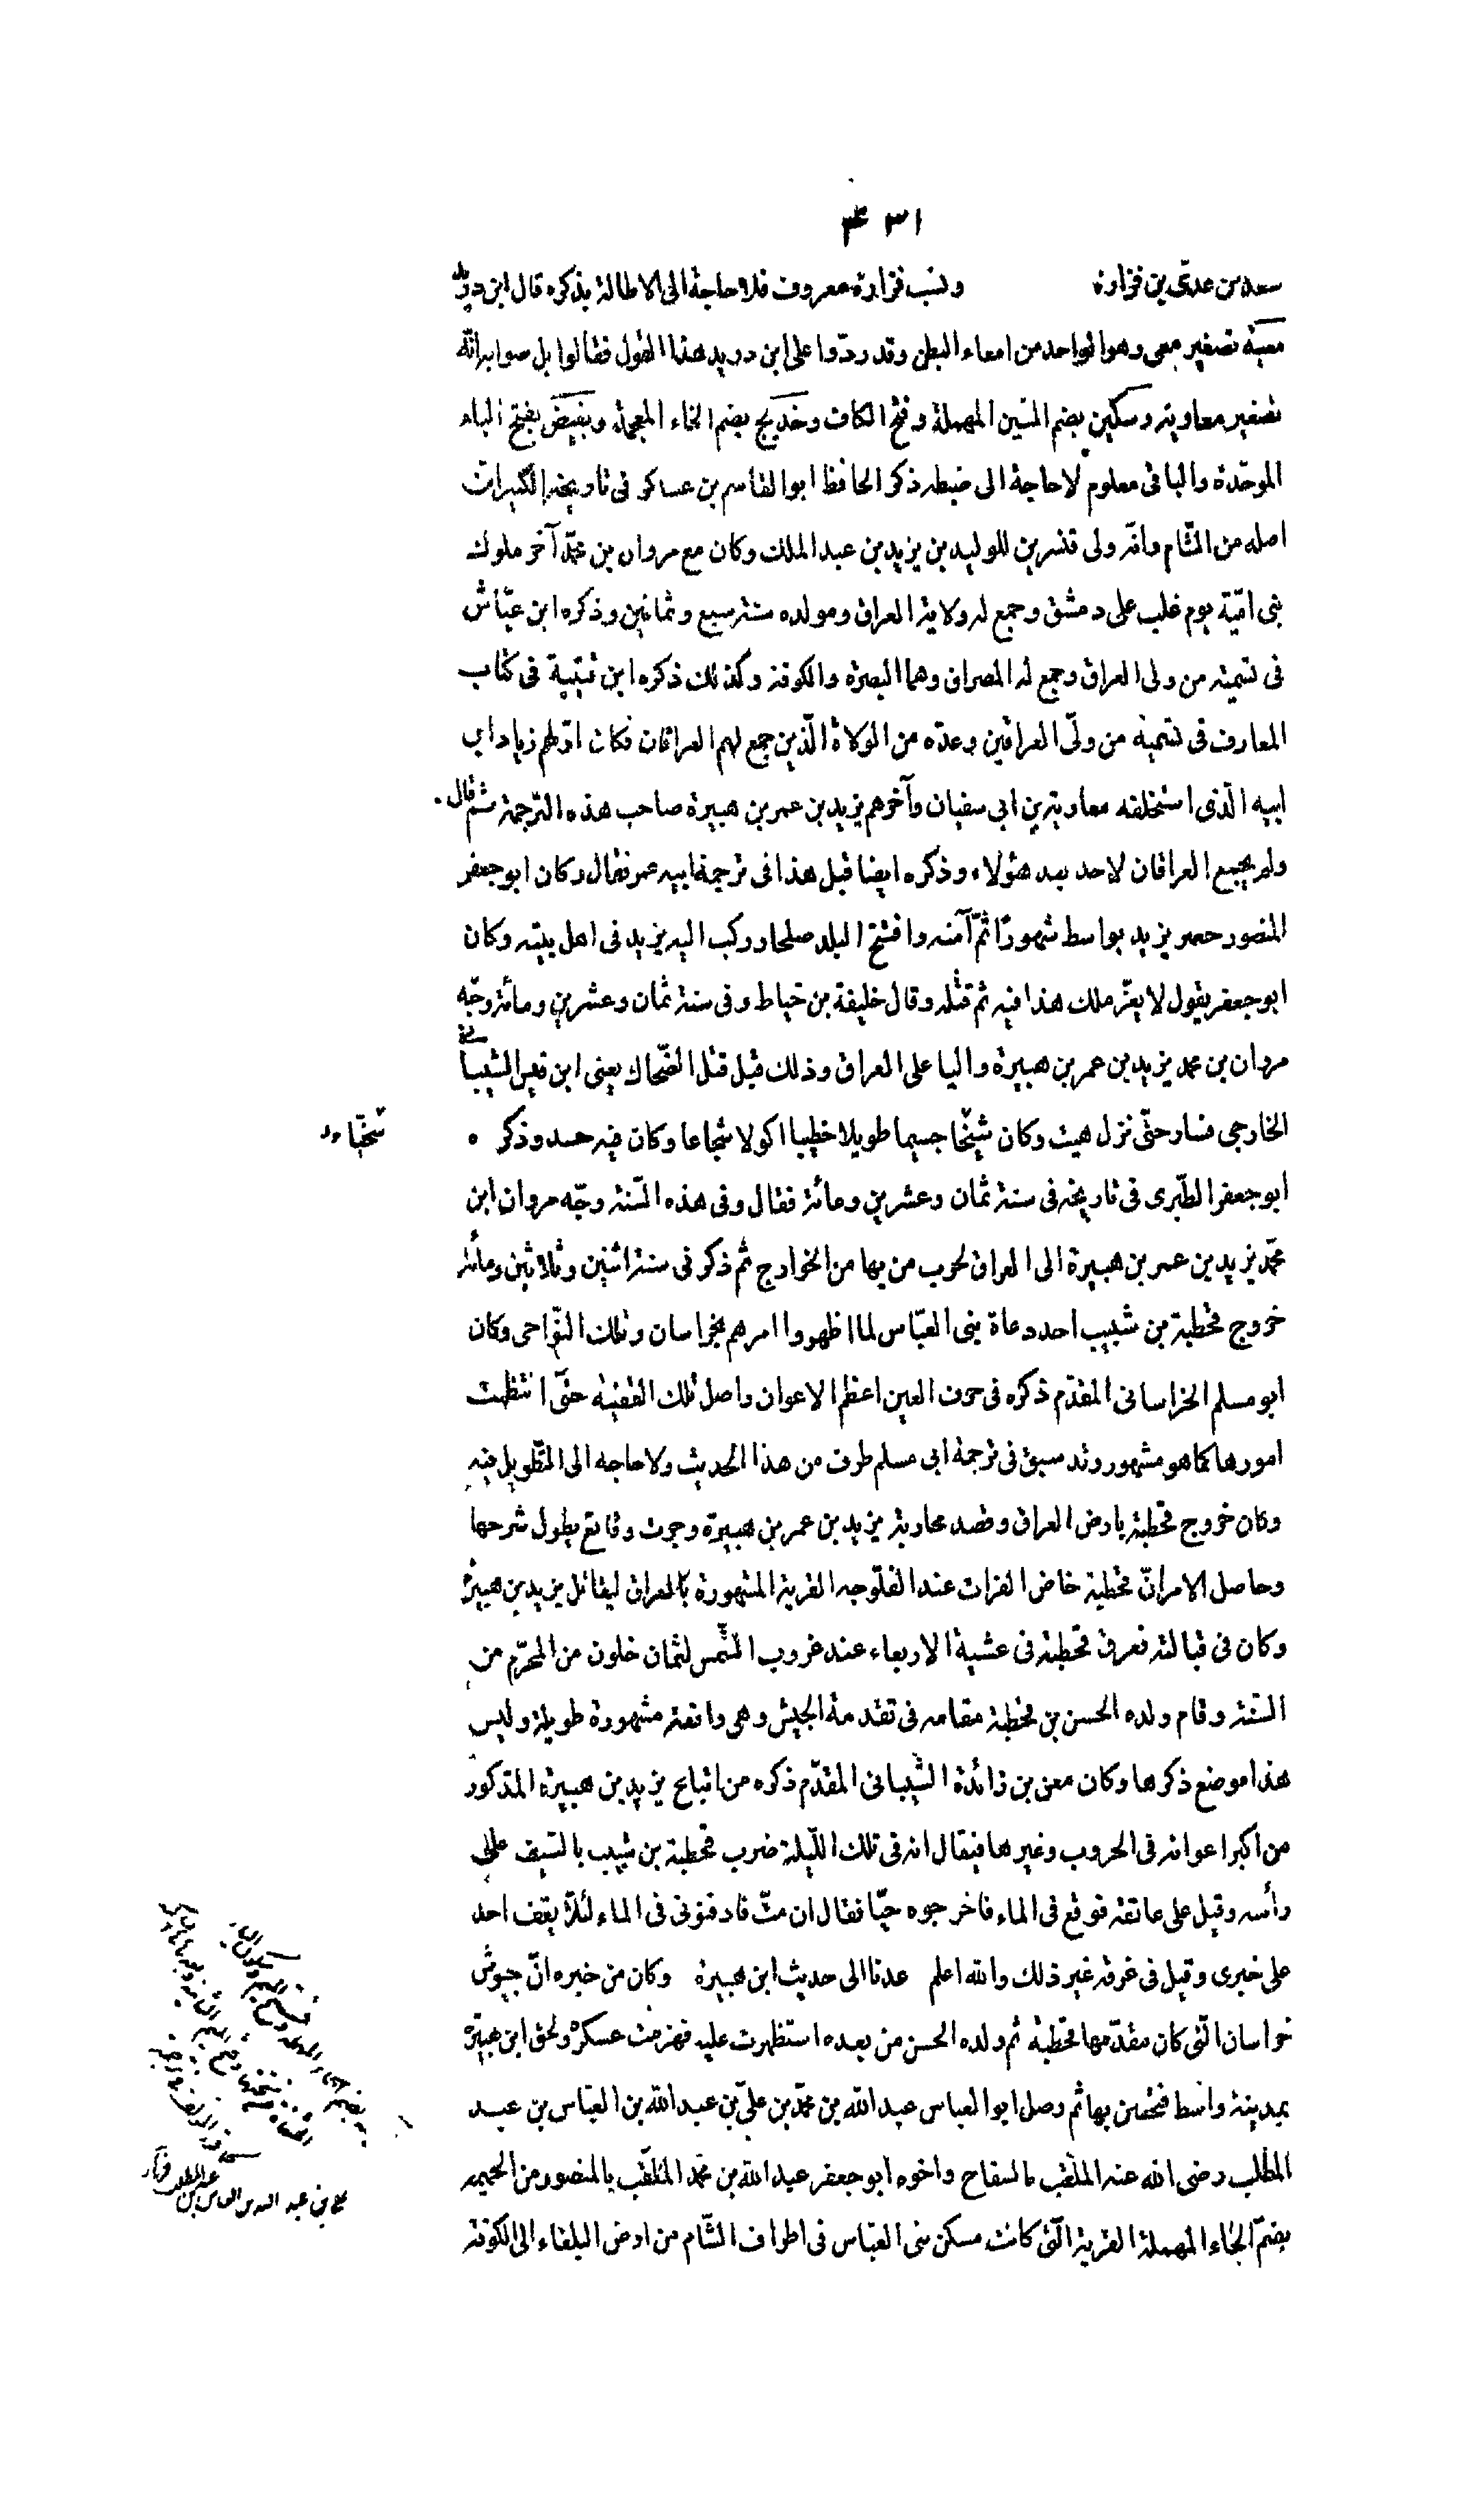 ٤٣١
سعد بن عدّى بن فزارة ونسب فزارة معروف فلا حاجة الى الاطالة بذكره قال ابن دريد
معية تصغير معى وهو الواحد من امعاء البطن وقد ردّوا على ابن دريد هذا القول فقالوا بل صوابه انّه
تصغير معاوية وسكين بضم السّين المهملة وفتح الكاف وخديج بضم الخاء المعجمة وبغيض بفتح الباء
الموحّدة والباقى معلوم لا حاجة الى ضبطه ذكر الحافظ ابو القاسم بن عساكر فى تاريخه الكبير ان
اصله من الشّام وانّه ولى قنسرين للوليد بن يزيد بن عبد الملك وكان مع مروان بن محمّد آخر ملوك
بنى اميّة يوم غلب على دمشق وجمع له ولاية العراق ومولده سنة سبع وثمانين وذكره ابن عيّاش
فى تسمية من ولى العراق وجمع له المصران وهما البصرة والكوفة وكذلك ذكره ابن قتيبة فى كتاب
المعارف فى تسمية من ولّى العراقين وعدّه من الولاة الّذين جمع لهم العراقان فكان اوّلهم زياد ابن
ابيه الّذى استخلفه معاوية بن ابى سفيان وآخرهم يزيد بن عمر بن هبيرة صاحب هذه التّرجمة ثم قال
ولم يجمع العراقان لاحد بعد هؤلاء وذكره ايضا قبل هذا فى ترجمة ابيه عمر فقال وكان ابو جعفر
المنصور حصر يزيد بواسط شهورًا ثمّ آمنه وافتتح البلد صلحا وركب اليه يزيد فى اهل بيته وكان
ابو جعفر يقول لا يعزّ ملك هذا فيه ثم قتله وقال خليفة بن خياط وفى سنة ثمان وعشرين ومائة وجّه
مروان بن محمد يزيد بن عمر بن هبيرة واليا على العراق وذلك قبل قتل الضّحاك يعنى ابن قيس الشيبانى
الخارجى فسار حتّى نزل هيت وكان شيخا جسيما طويلا خطيبا اكولا شجاعا وكان فيه حسد وذكر
سخيّا
ابو جعفر الطّبرى فى تاريخه فى سنة ثمان وعشرين ومائة فقال وفى هذه السّنة وجّه مروان ابن
محمّد يزيد بن عمر بن هبيرة الى العراق لحرب من بها من الخوارج ثم ذكر فى سنة اثنين وثلاثين ومائة
خروج قحطبة بن شبيب احد دعاة بنى العبّاس لما اظهروا امرهم بخراسان وتلك النّواحى وكان
ابو مسلم الخراسانى المقدّم ذكره فى حرف العين اعظم الاعوان واصل تلك القضية حتّى انتظمت
امورها كما هو مشهور وقد سبق فى ترجمة ابى مسلم طرف من هذا الحديث ولا حاجه الى التّطويل فيه
وكان خروج قحطبة بارض العراق وقصد محاربة يزيد بن عمر بن هبيرة وجرت وقائع يطول شرحها
وحاصل الامر انّ قحطبة خاض الفرات عند الفلّوجه القرية المشهورة بالعراق ليقاتل يزيد بن هبيرة
وكان فى قبالته فغرق قحطبة فى عشية الاربعاء عند غروب الشّمس لثمان خلون من المحرّم من
السّنة وقام ولده الحسن بن قحطبة مقامه فى تقدمة الجيش وهى واقعة مشهورة طويلة وليس
هذا موضع ذكرها وكان معن بن زائدة الشّيبانى المقدّم ذكره من اتباع يزيد بن هبيرة المذكور
من اكبر اعوانه فى الحروب وغيرها فيقال انه فى تلك اللّيلة ضرب قحطبة بن شبيب بالسّيف على
رأسه وقيل على عاتقه فوقع فى الماء فاخرجوه حيّا فقال ان متّ فادفنونى فى الماء لئلّا يقف احد
على خبرى وقيل فى غرقه غير ذلك والله اعلم عدنا الى حديث ابن هبيرة وكان من خبره انّ جيوش
خراسان الّتى كان مقدّمها قحطبة ثم ولده الحسن من بعده استظهرت عليه فهزمت عسكره ولحق ابن هبيرة
بمدينة واسط فتحصّن بها ثم وصل ابو العباس عبد الله بن محمّد بن علىّ بن عبد الله بن العبّاس بن عبد
المطّلب رضى الله عنه الملّقب بالسفاح واخوه ابو جعفر عبد الله بن محمّد الملقّب بالمنصور من الحميمه
بضمّ الحاء المهملة القرية الّتى كانت مسكن بنى العبّاس فى اطراف الشّام من ارض البلقاء الى الكوفة